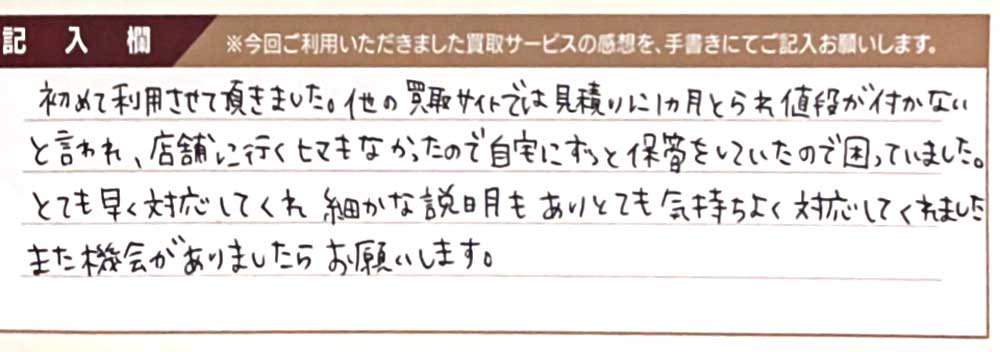 記入欄
※今回ご利用いただきました買取サービスの感想を、手書きにてご記入お願いします。
初めて利用させて頂きました。他の買取サイトでは見積りに1カ月とられ値段が付かない
と言われ、店舗に行くヒマもなかったので自宅にずっと保管をしていたので困っていました。
とても早く対応してくれ 細かな説明もありとても気持ちよく対応してくれました
また機会がありましたらお願いします。